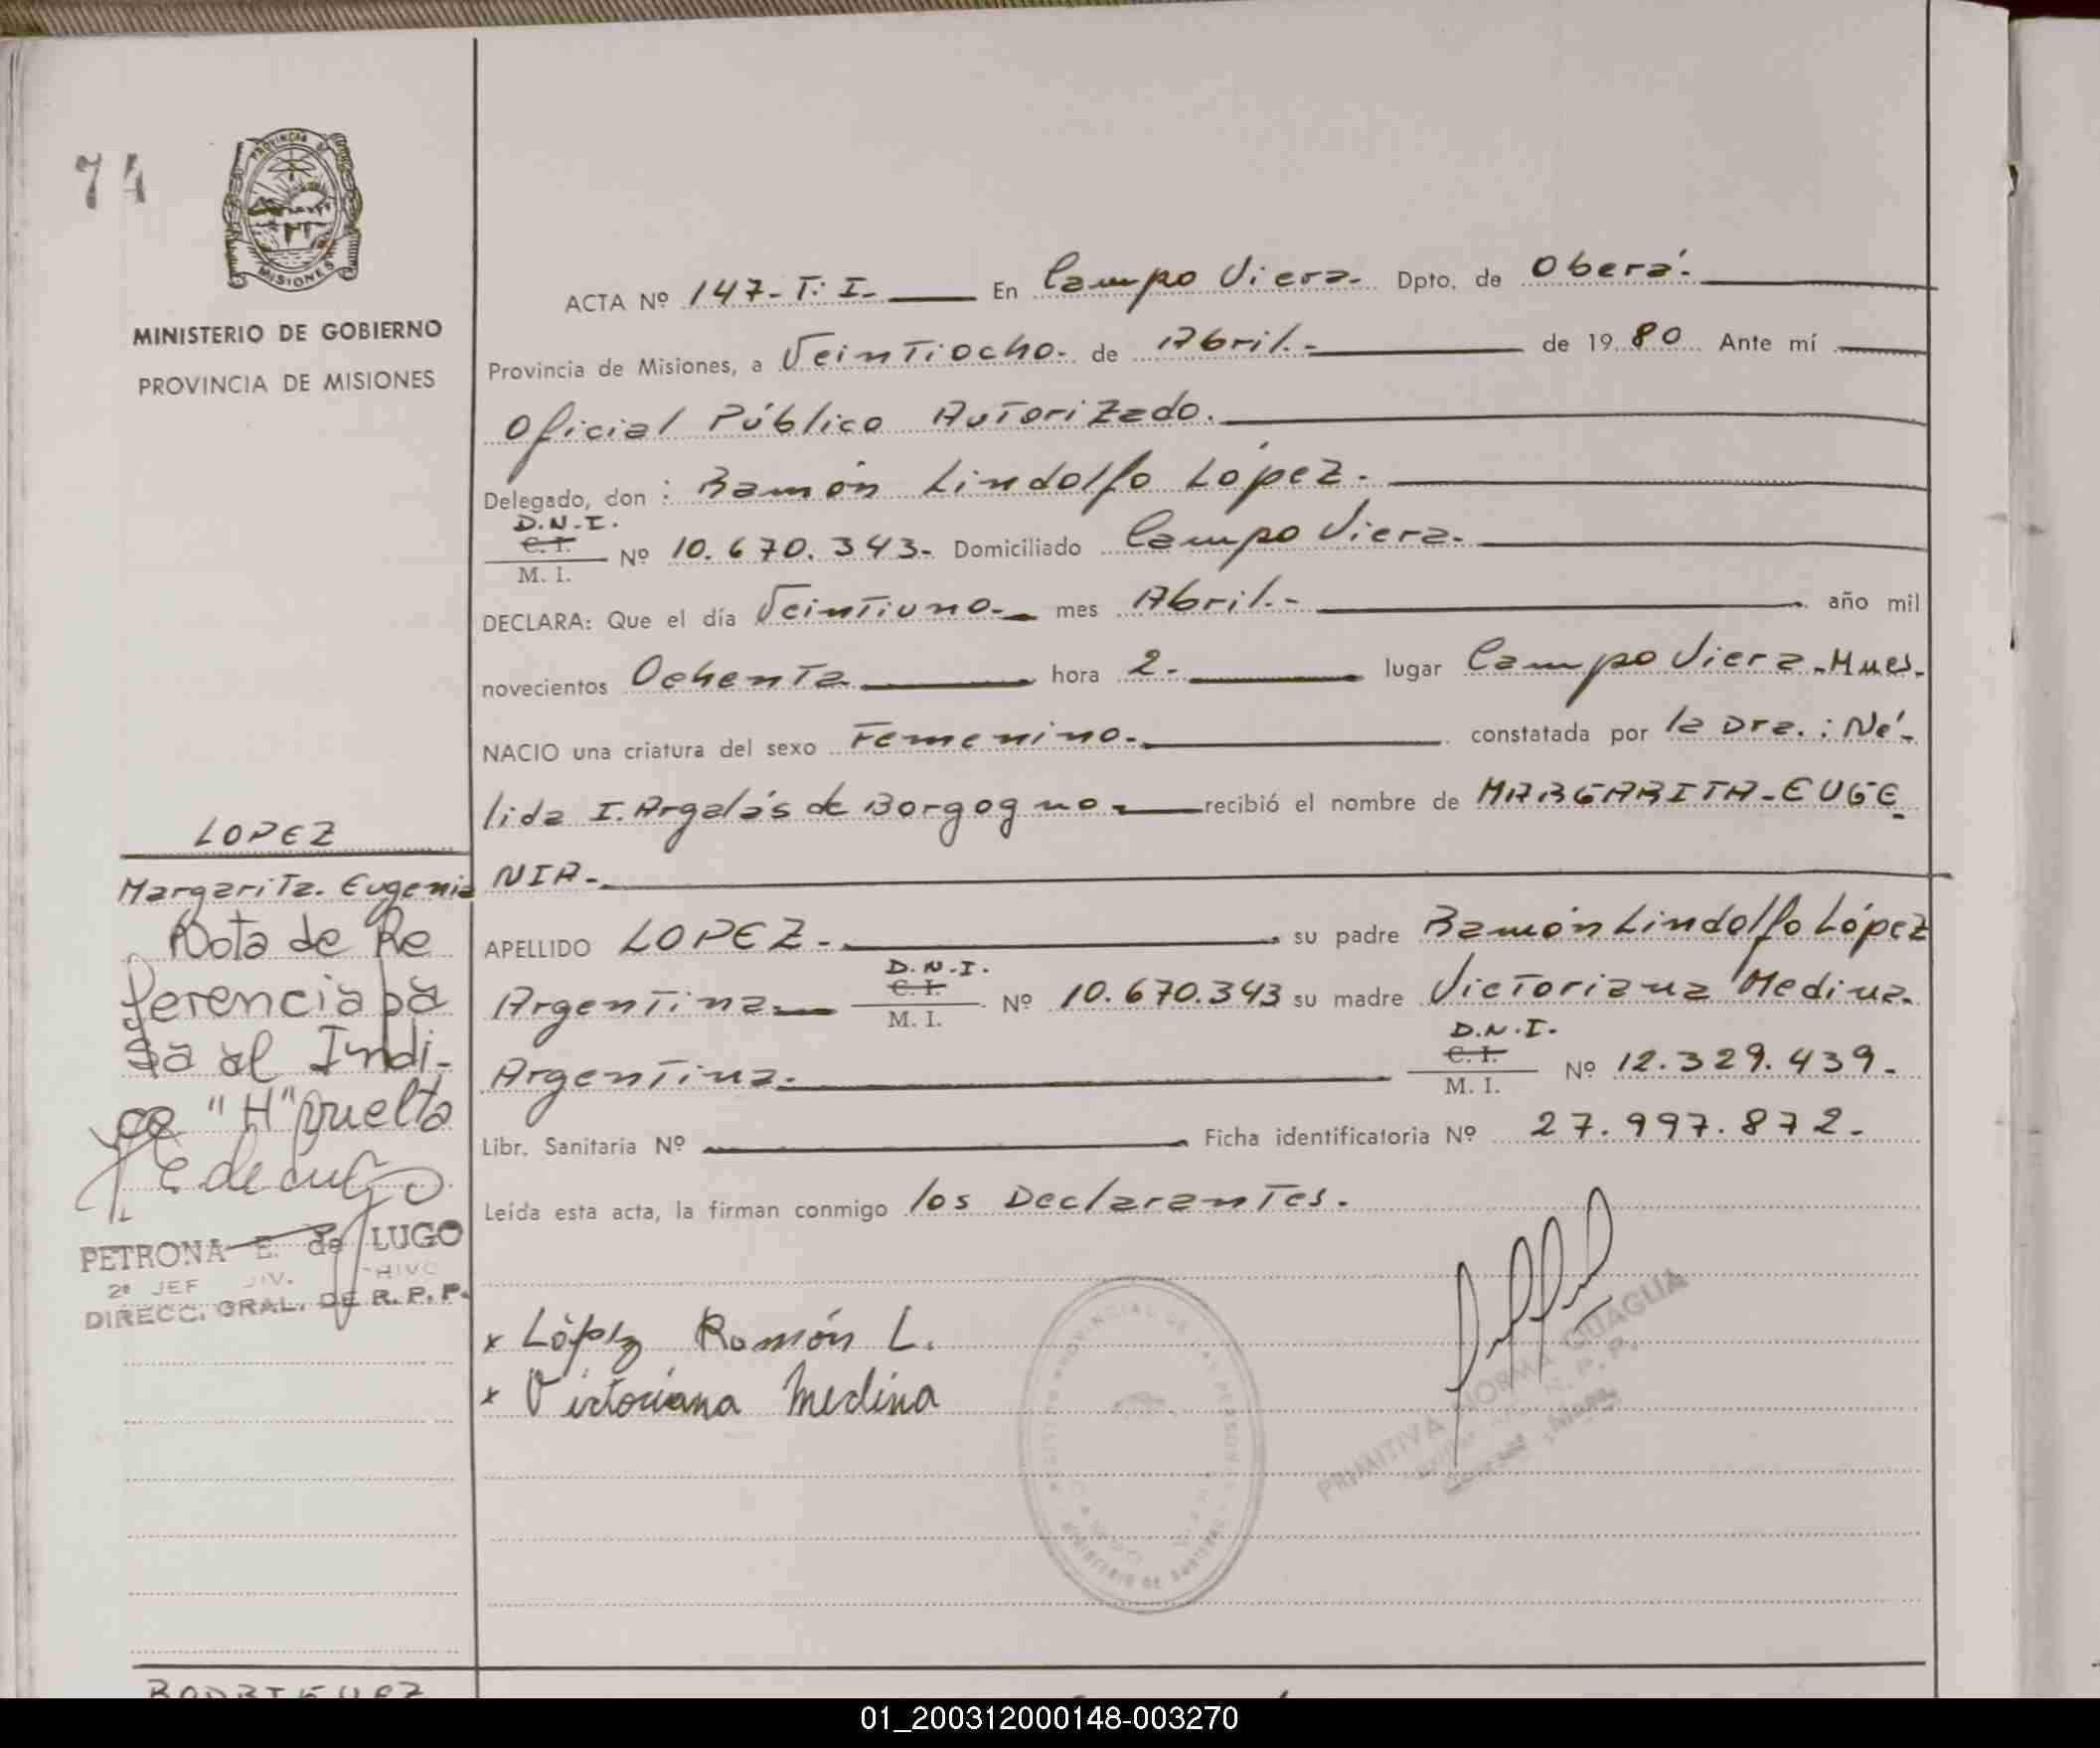 74
PROVINCIA DE
MISIONES
MINISTERIO DE GOBIERNO
PROVINCIA DE MISIONES
ACTA Nº 147-T: I- En Campo Viera- Dpto. de Oberá-
Provincia de Misiones, a Veintiocho- de Abril.- de 1980 Ante mí
Oficial Público Autorizado.
Delegado, don : Ramón Lindolfo López.-
D.N.I.
C. I.
M. I.
Nº 10.670.343- Domiciliado Campo Viera-
DECLARA: Que el día Veintiuno- mes Abril.- año mil
novecientos Ochenta hora 2.- lugar Campo Viera-Mnes-
NACIO una criatura del sexo Femenino.- constatada por la Dra. : Né-
lida I. Argalás de Borgogno- recibió el nombre de MARGARITA-EUGE
NIA-
APELLIDO LOPEZ- su padre Ramón Lindolfo López
Argentina D.N.I.
C. I.
M. I.
Nº 10.670.343 su madre Victoriana Medina.
Argentina- D.N.I.
C. I.
M. I.
Nº 12.329.439-
Libr. Sanitaria Nº Ficha identificatoria Nº 27.997.872-
Leída esta acta, la firman conmigo los Declarantes.
x López Ramón L.
x Victoriana Medina
PRIMITIVA NORMA QUAGLIA
R. P. P.
LOPEZ
Margarita. Eugenia
Nota de Re
ferencia pa
sa al Indi-
ce "H" vuelta
E de Lugo
PETRONA E. de LUGO
2º JEF DIV.
DIRECC. GRAL. DE R. P. P.
RODRIGUEZ
01_200312000148-003270